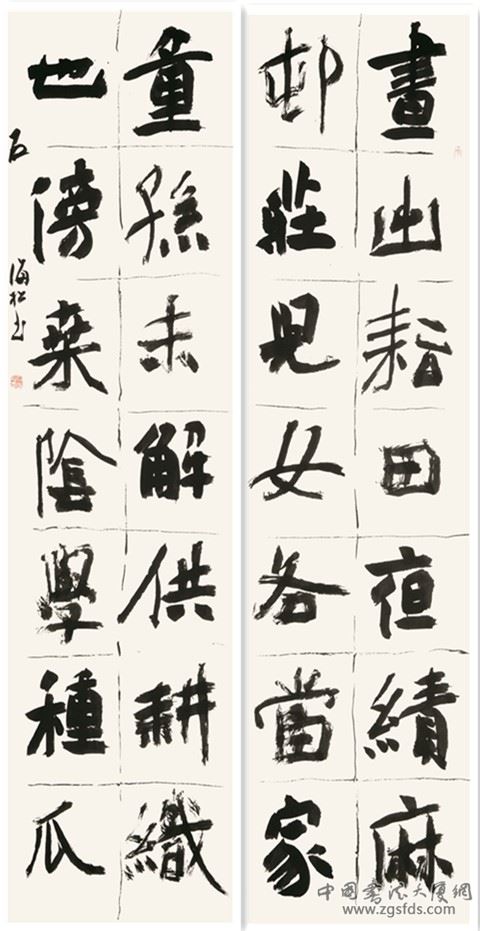 晝出耘田夜績麻
邨莊兒女各當家
童孫未解供耕織
也傍桑陰學種瓜
石海松书
中國書法大廈網
www.zgsfds.com